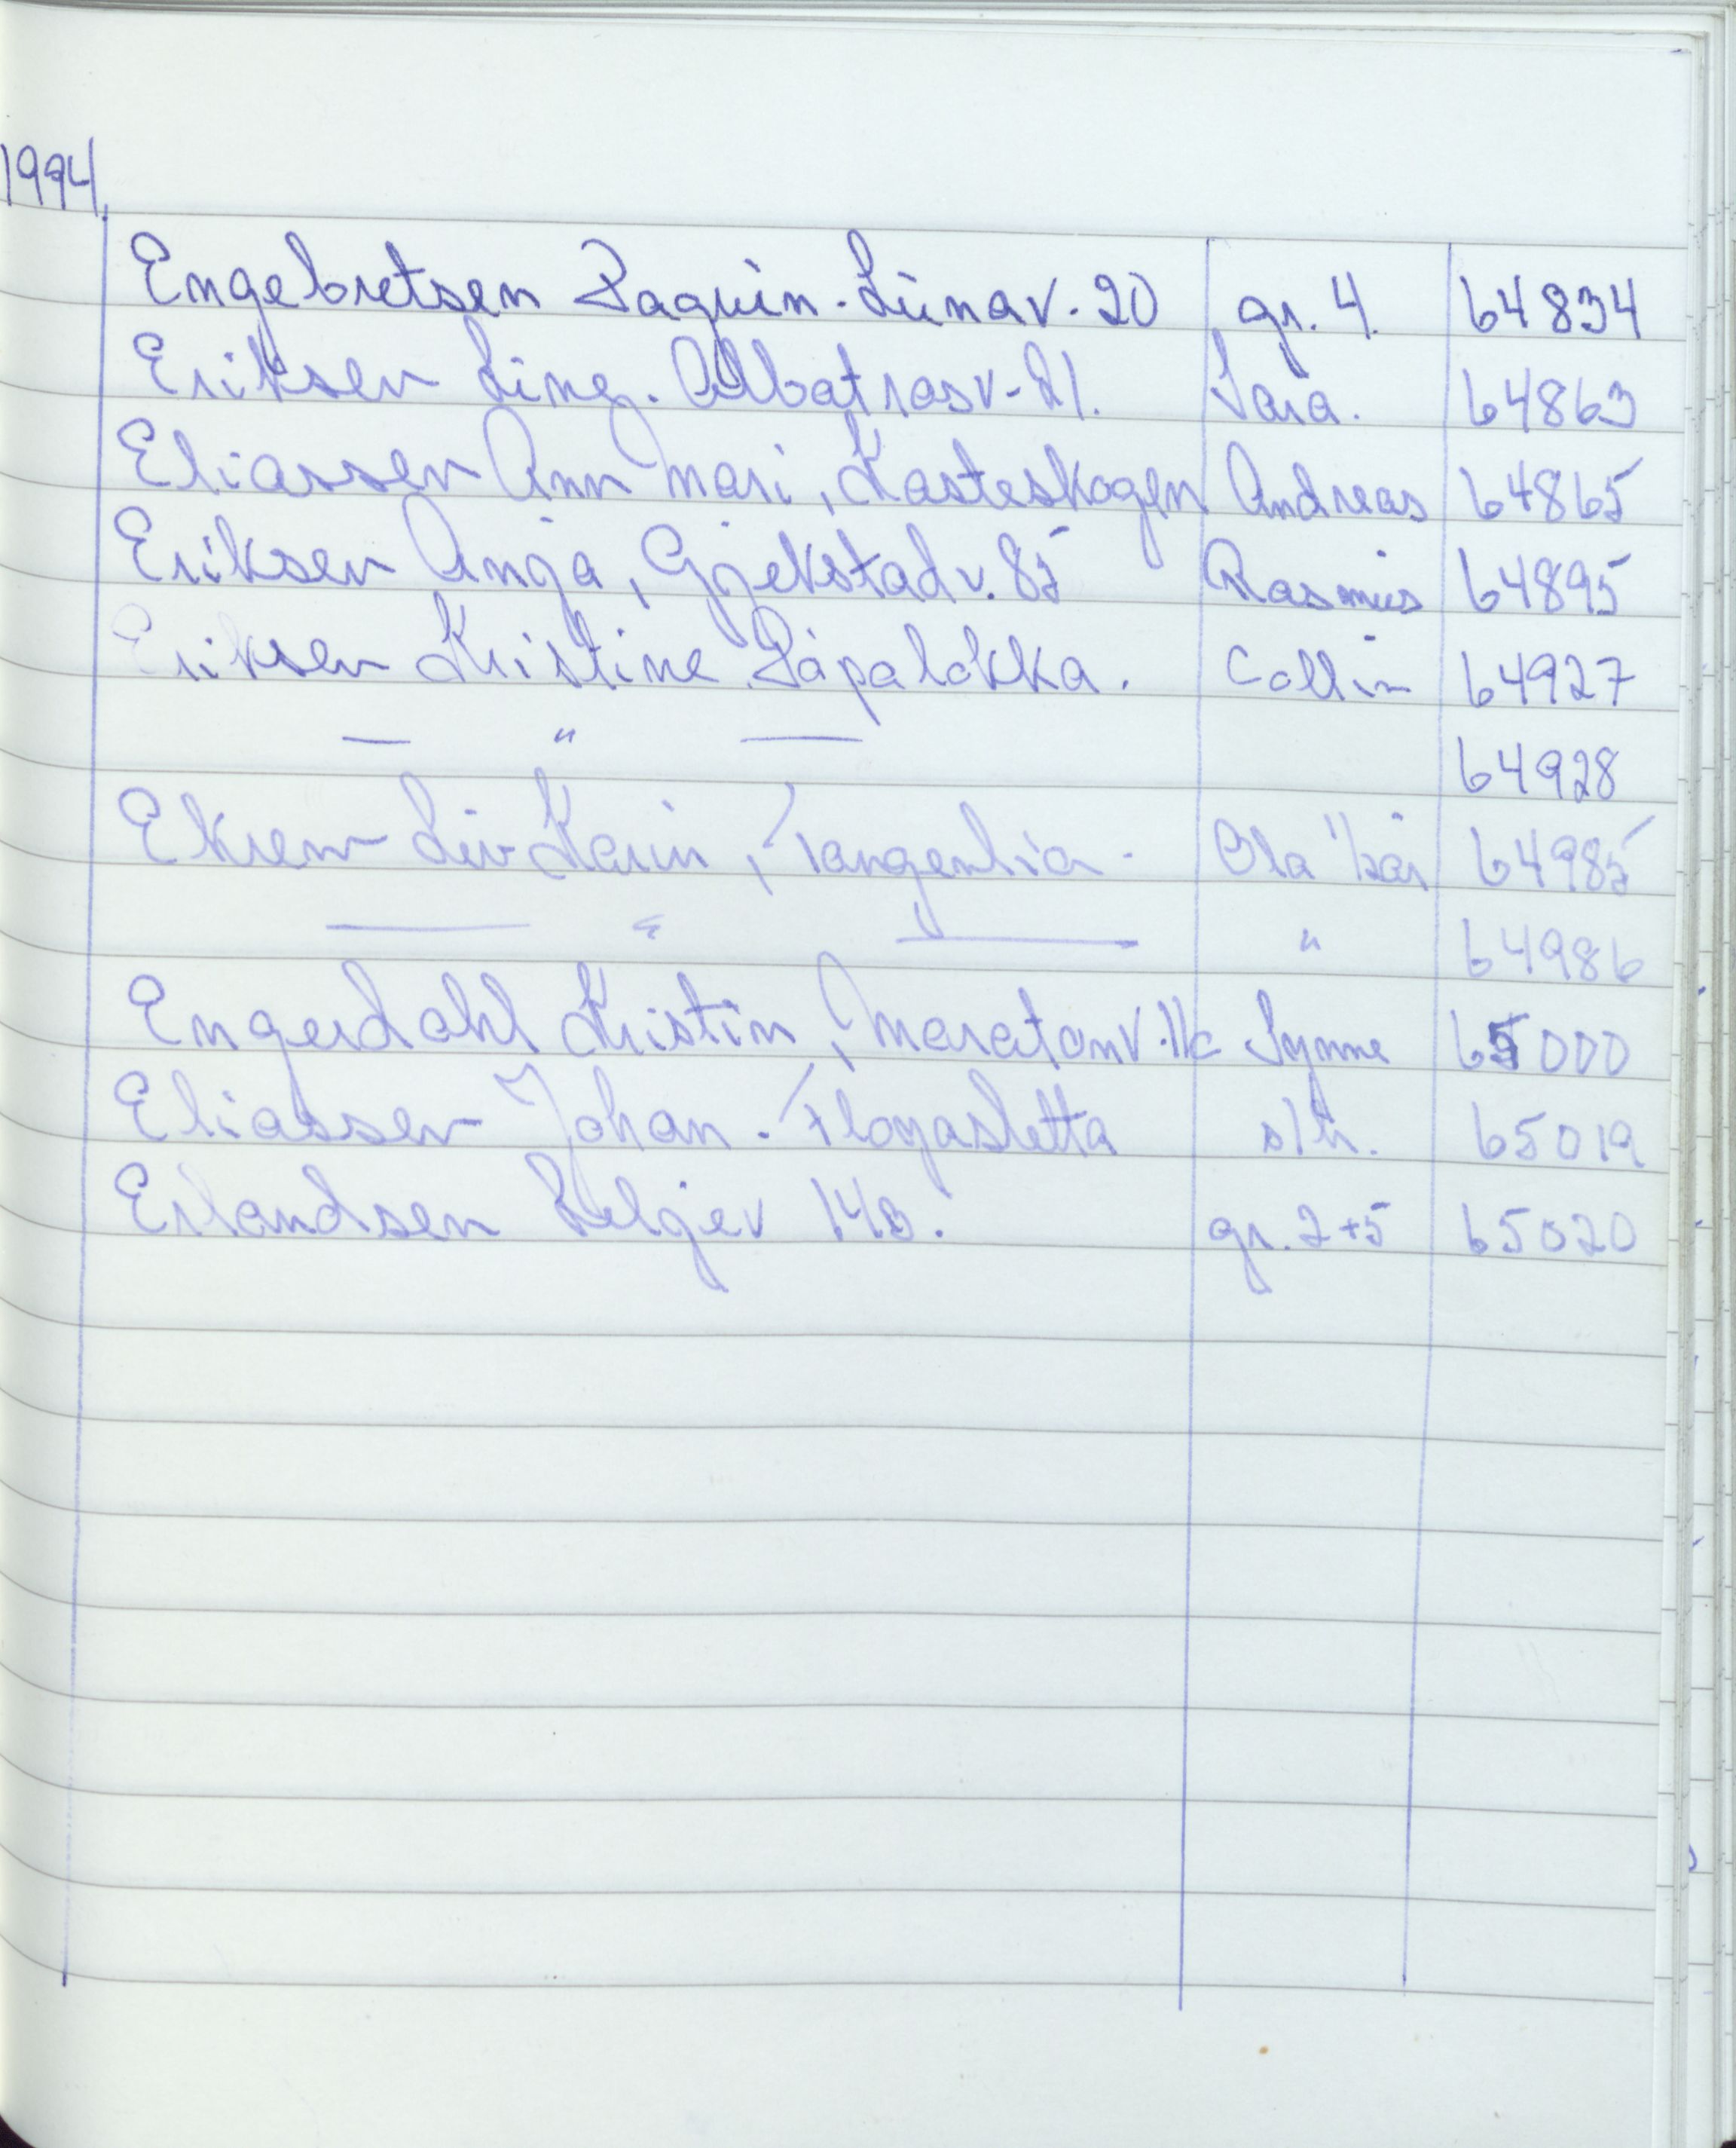 1994.
Engebretsen Paquin. Lunav. 20 gr. 4. 64834
Eriksen Line. Albatrosv. 21. Sara. 64863
Eliassen Ann Mari, Kasteskogen Andreas 64865
Eriksen Anja, Gjekstadv. 85 Rasmus 64895
Eriksen Kristine, Såpaløkka. Collin 64927
— " — 64928
Ekrem Liv Karin, Tangenlia. Ola 64985
— " — " 64986
Engerdahl Kristin, Maratonv. 11c Synne 65000
Eliassen Johan. Fløyasletta 65019
Erlandsen Helgev 140. gr. 2+5 65020